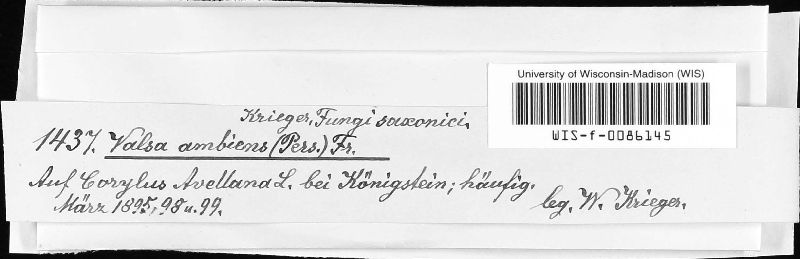 University of Wisconsin-Madison (WIS)
WIS-f-0086145
Krieger, Fungi saxonici.
1437. Valsa ambiens (Pers.) Fr.
Auf Corylus Avellana L. bei Königstein; häufig.
März 1895, 98 u. 99.
leg. W. Krieger.